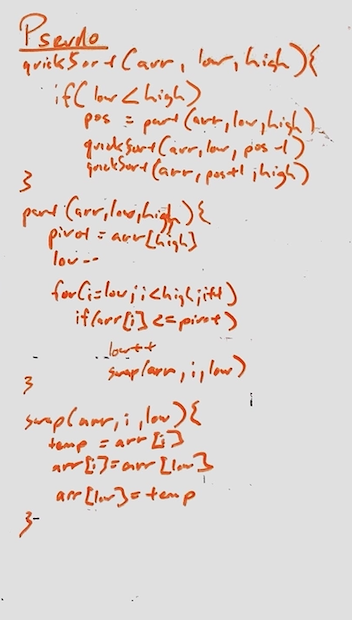 Pseudo
quickSort(arr, low, high){
if(low<high)
pos = part(arr,low,high)
quickSort(arr,low, pos-1)
quickSort(arr, pos+1, high)
}
part(arr,low,high){
pivot = arr[high]
low--
for(i=low;i<high;i++)
if(arr[i]<=pivot)
low++
swap(arr, i, low)
}
swap(arr, i, low){
temp = arr[i]
arr[i]=arr[low]
arr[low]=temp
}